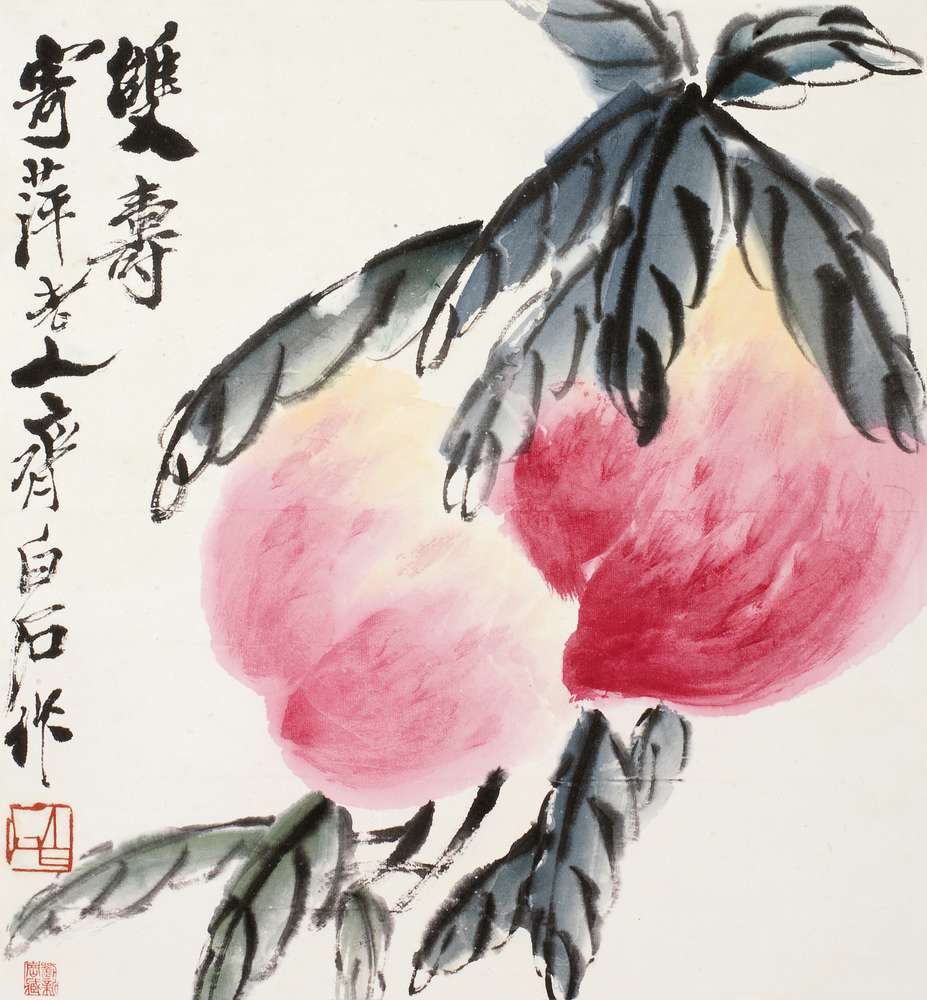 雙壽
寄萍老人齊白石作